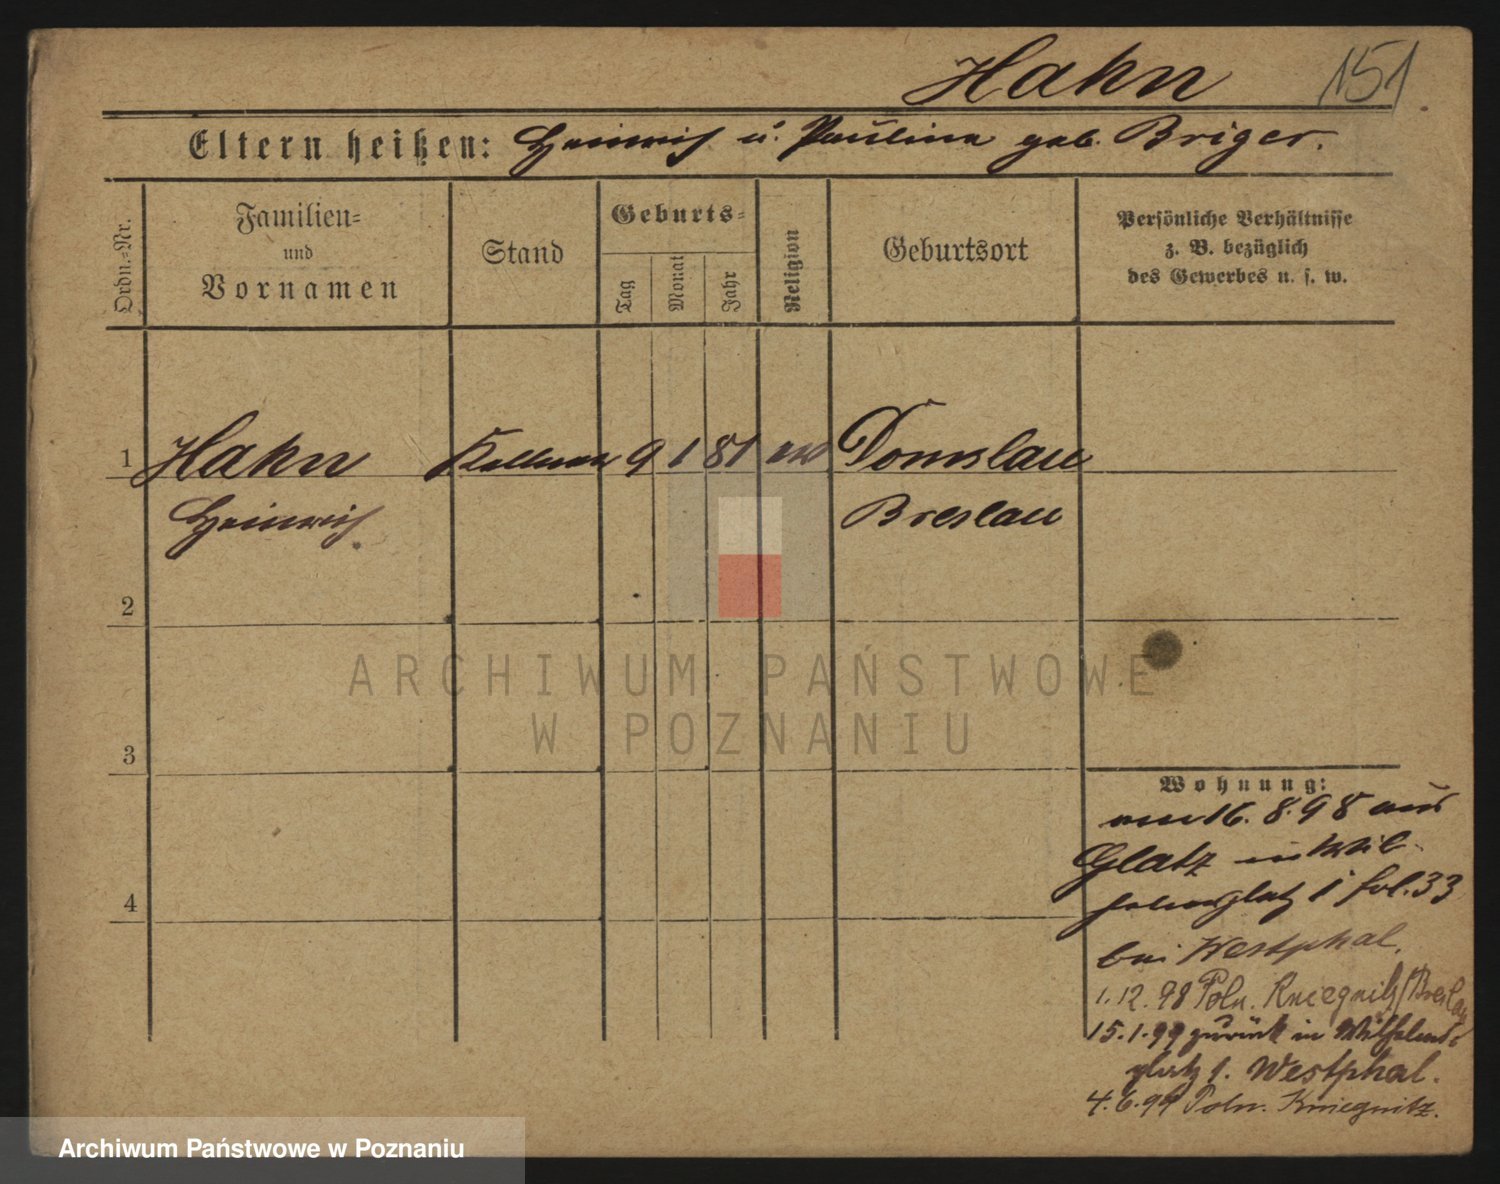 Hahn 151
Eltern heißen: Heinrich u. Paulina geb. Briger.
Ordn.-Nr.
Familien-
und
Vornamen
Stand
Geburts-
Tag
Monat
Jahr
Religion
Geburtsort
Persönliche Verhältnisse
z. B. bezüglich
des Gewerbes u. s. w.
1 Hahn Kellner 9 1 81 Domslau
Heinrich Breslau
2
3
4
ARCHIWUM PAŃSTWOWE
W POZNANIU
Wohnung:
16. 8. 98 aus
Glatz in Wil-
helmsplatz 1 fol. 33
bei Westphal.
1. 12. 98 Poln. Kniegnitz/Breslau
15. 1. 99 zurück in Wilhelms-
platz 1. Westphal.
4. 6. 99 Poln. Kniegnitz.
Archiwum Państwowe w Poznaniu